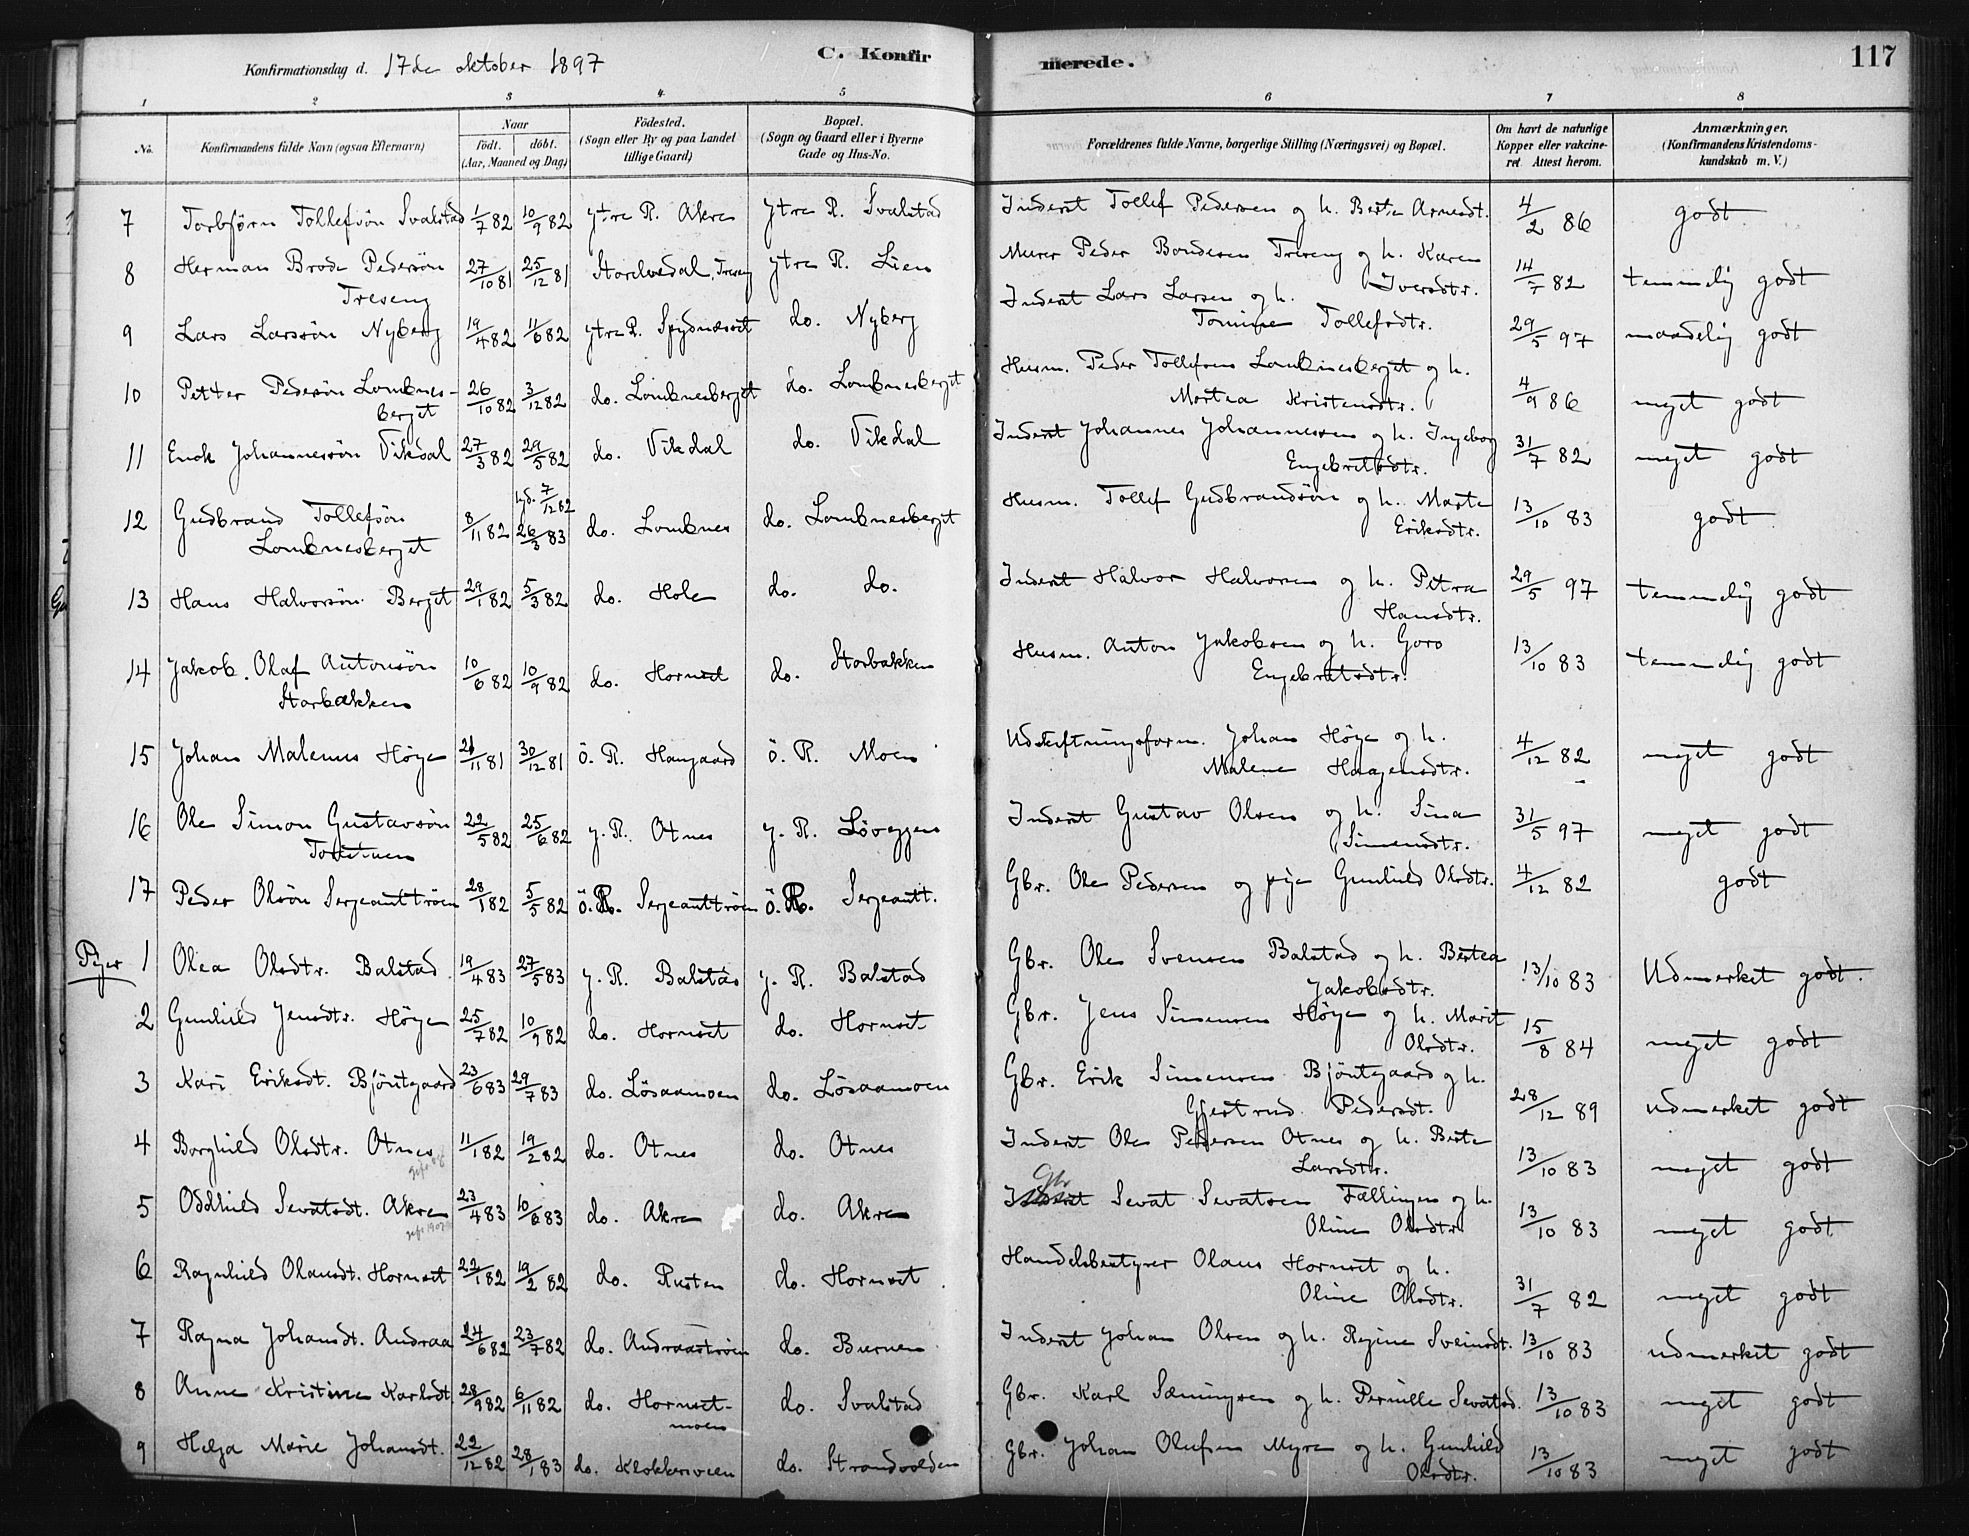 Konfirmationsdag d. 17de oktober 1897 C. Konfirmerede. 117
1 2 3 4 5 6 7 8
No. Konfirmandens fulde Navn (ogsaa Efternavn) Naar født. døbt. (Aar, Maaned og Dag) Fødested. (Sogn eller By og paa Landet tillige Gaard) Bopæl. (Sogn og Gaard eller i Byerne Gade og Hus-No. Forældrenes fulde Navne, borgerlige Stilling (Næringsvei) og Bopæl. Om havt de naturlige Kopper eller vakcineret. Attest herom. Anmærkninger. (Konfirmandens Kristendomskundskab m. V.)
7 Torbjörn Tollefsön Svalstad 1/7 82 10/9 82 ytre R. Akre ytre R. Svalstad Inderst Tollef Pedersen og h. Berte Arnesdt. 4/2 86 godt
8 Herman Brode Pedersön Treseng 27/10 81 25/12 81 Storelvedal, Treseng ytre R. Lien Murer Peder Bondesen Treseng og h. Karen Iversdtr. 14/7 82 temmelig godt
9 Lars Larssön Nyberg 19/4 82 11/6 82 ytre R. Spydnæsset do. Nyberg Inderst Lars Larsen og h. Tomine Tollefsdtr. 29/5 97 maadelig godt
10 Petter Pedersön Lombnesberget 26/10 82 3/12 82 do. Lombnesberget do. Lombnesberget Husm. Peder Tollefsen Lombnesberget og h. Martea Kristensdtr. 4/9 86 meget godt
11 Enok Johannessön Vikdal 27/3 82 29/5 82 do. Vikdal do. Vikdal Inderst Johannes Johannessen og h. Ingeborg Engebretsdtr. 31/7 82 meget godt
12 Gudbrand Tollefsön Lombnesberget 8/11 82 hjd. 7/12 82 26/3 83 do. Lombnes do. Lombnesberget Husm. Tollef Gudbrandsön og h. Marte Eriksdtr. 13/10 83 godt
13 Hans Halvorsön Berget 29/1 82 5/3 82 do. Hole do. do. Inderst Halvor Halvorsen og h. Petra Hansdtr. 29/5 97 temmelig godt
14 Jakob Olaf Antonsön Storbækken 10/6 82 10/9 82 do. Hornset do. Storbækken Husm. Anton Jakobsen og h. Goro Engebretsdtr. 13/10 83 temmelig godt
15 Johan Malenus Höye 21/11 81 30/12 81 Ö. R. Haugaard Ö. R. Moen Udskiftningsform. Johan Höye og h. Malene Haagensdtr. 4/12 82 meget godt
16 Ole Simon Gustavsön 22/5 82 25/6 82 y. R. Otnes y. R. Löveggen Inderst Gustav Olsen og h. Sina Simensdtr. 31/5 97 meget godt
17 Peder Olsön Sergeanttröen 28/1 82 5/5 82 Ö. R. Sergeanttröen Ö. R. Sergeantt. Gbr. Ole Pedersen og pige Gunhild Olsdtr. 4/12 82 godt
Piger 1 Olea Olsdtr. Balstad 19/4 83 27/5 83 y. R. Balstad y. R. Balstad Gbr. Ole Svensen Balstad og h. Bertea Jakobsdtr. 13/10 83 Udmerket godt.
2 Gunhild Jensdtr. Höye 25/7 82 10/9 82 do. Hornset do. Hornset Gbr. Jens Simensen Höye og h. Marit Olsdtr. 15/8 84 meget godt
3 Kari Eriksdt. Bjöntgaard 23/6 83 29/7 83 do. Lösaamoen do. Lösaamoen Gbr. Erik Simensen Bjöntgaard og h. Gjertrud Pedersdt. 28/12 89 udmerket godt
4 Borghild Olsdtr. Otnes 11/1 82 19/2 82 do. Otnes do. Otnes Inderst Ole Pedersen Otnes og h. Berte Larsdtr. 13/10 83 meget godt
5 Oddhild Sevatsdt. Akre 23/4 83 10/6 83 do. Akre do. Akre Gbr Inderst Sevat Sevatsen Fællingen og h. Oline Olsdtr. 13/10 83 meget godt
6 Ragnhild Olausdt. Hornset 22/1 82 19/2 82 do. Rusten do. Hornset Handelsbestyrer Olaus Hornset og h. Oline Olsdtr. 31/7 82 meget godt
7 Ragna Johansdt. Andraa 24/6 82 23/7 82 do. Andraatröen do. Burnen Inderst Johan Olsen og h. Regine Sveinsdt. 13/10 83 udmerket godt
8 Anne Kristine Karlsdt 28/9 82 6/11 82 do. Hornsetmoen do. Svalstad Gbr. Karl Sæmingsen og h. Pernille Sevatsd. 13/10 83 meget godt
9 Helga Marie Johansdt. 22/12 82 28/1 83 do. Klokkerveen do. Strandvolden Gbr. Johan Olufsen Myre og h. Gunhild Olsdtr. 13/10 83 meget godt